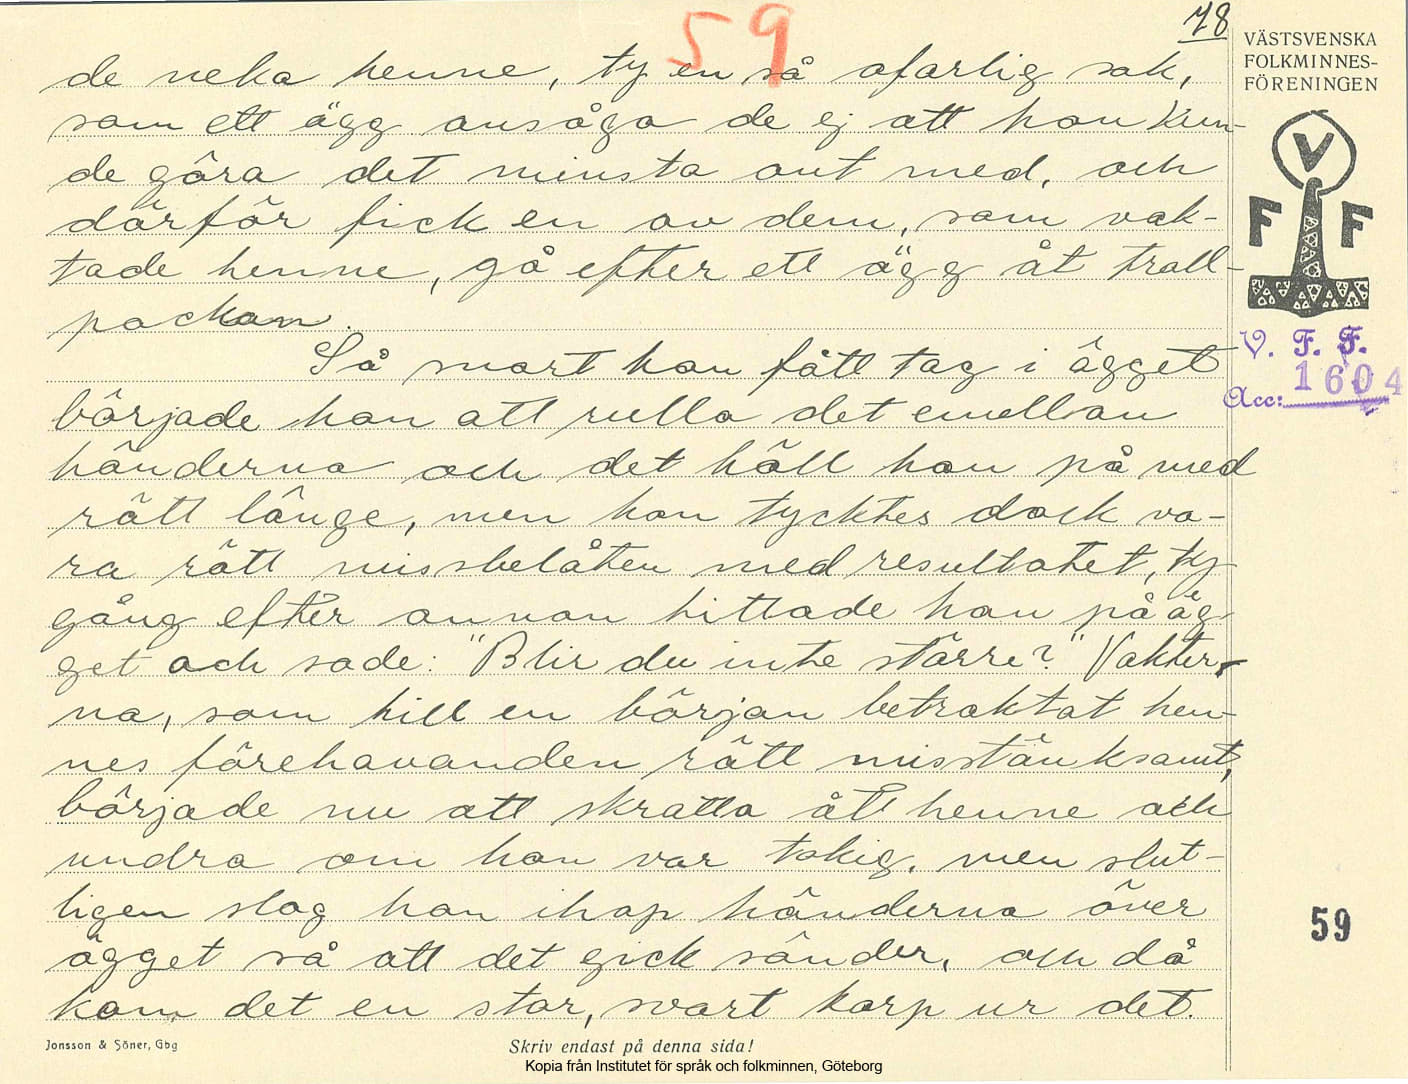 59
78
VÄSTSVENSKA
FOLKMINNES-
FÖRENINGEN
V
F F
V. F. F.
Acc: 1604
de neka henne, ty en så ofarlig sak,
som ett ägg ansågo de ej att hon kun-
de göra det minsta ont med, och
därför fick en av dem, som vak-
tade henne, gå efter ett ägg åt troll-
packan.
Så snart hon fått tag i ägget
började hon att rulla det emellan
händerna och det höll hon på med
rätt länge, men hon tycktes dock va-
ra rätt missbelåten med resultatet, ty
gång efter annan tittade hon på äg-
get och sade: "Blir du inte större?" Vakter-
na, som till en början betraktat hen-
nes förehavanden rätt misstänksamt,
började nu att skratta åt henne och
undra om hon var tokig, men slut-
ligen slog hon ihop händerna över
ägget så att det gick sönder, och då
kom det en stor, svart korp ur det.
59
Jonsson & Söner, Gbg
Skriv endast på denna sida!
Kopia från Institutet för språk och folkminnen, Göteborg